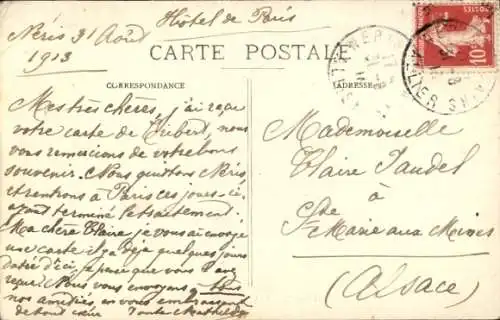 Hôtel de Paris
Néris 31 Août
1913
CARTE POSTALE
CORRESPONDANCE
ADRESSE
Mes très chères, j'ai reçue
votre carte de Fribert, nous
vous remercions de votre bons
souvenir. Nous quittons Néris
et rentrons à Paris ces jours-ci
ayant terminé le traitement.
Ma chère Claire je vous ai envoyé
une carte il y a déjà quelques jours
datée d'ici, je pense que vous l'avez
reçue. Nous vous envoyons
nos amitiés, en vous embrassant
de tout cœur Tante Mathilde
Mademoiselle
Claire Jaudel
à
Ste Marie aux Mines
(Alsace)
POSTES
10c
ALLIER